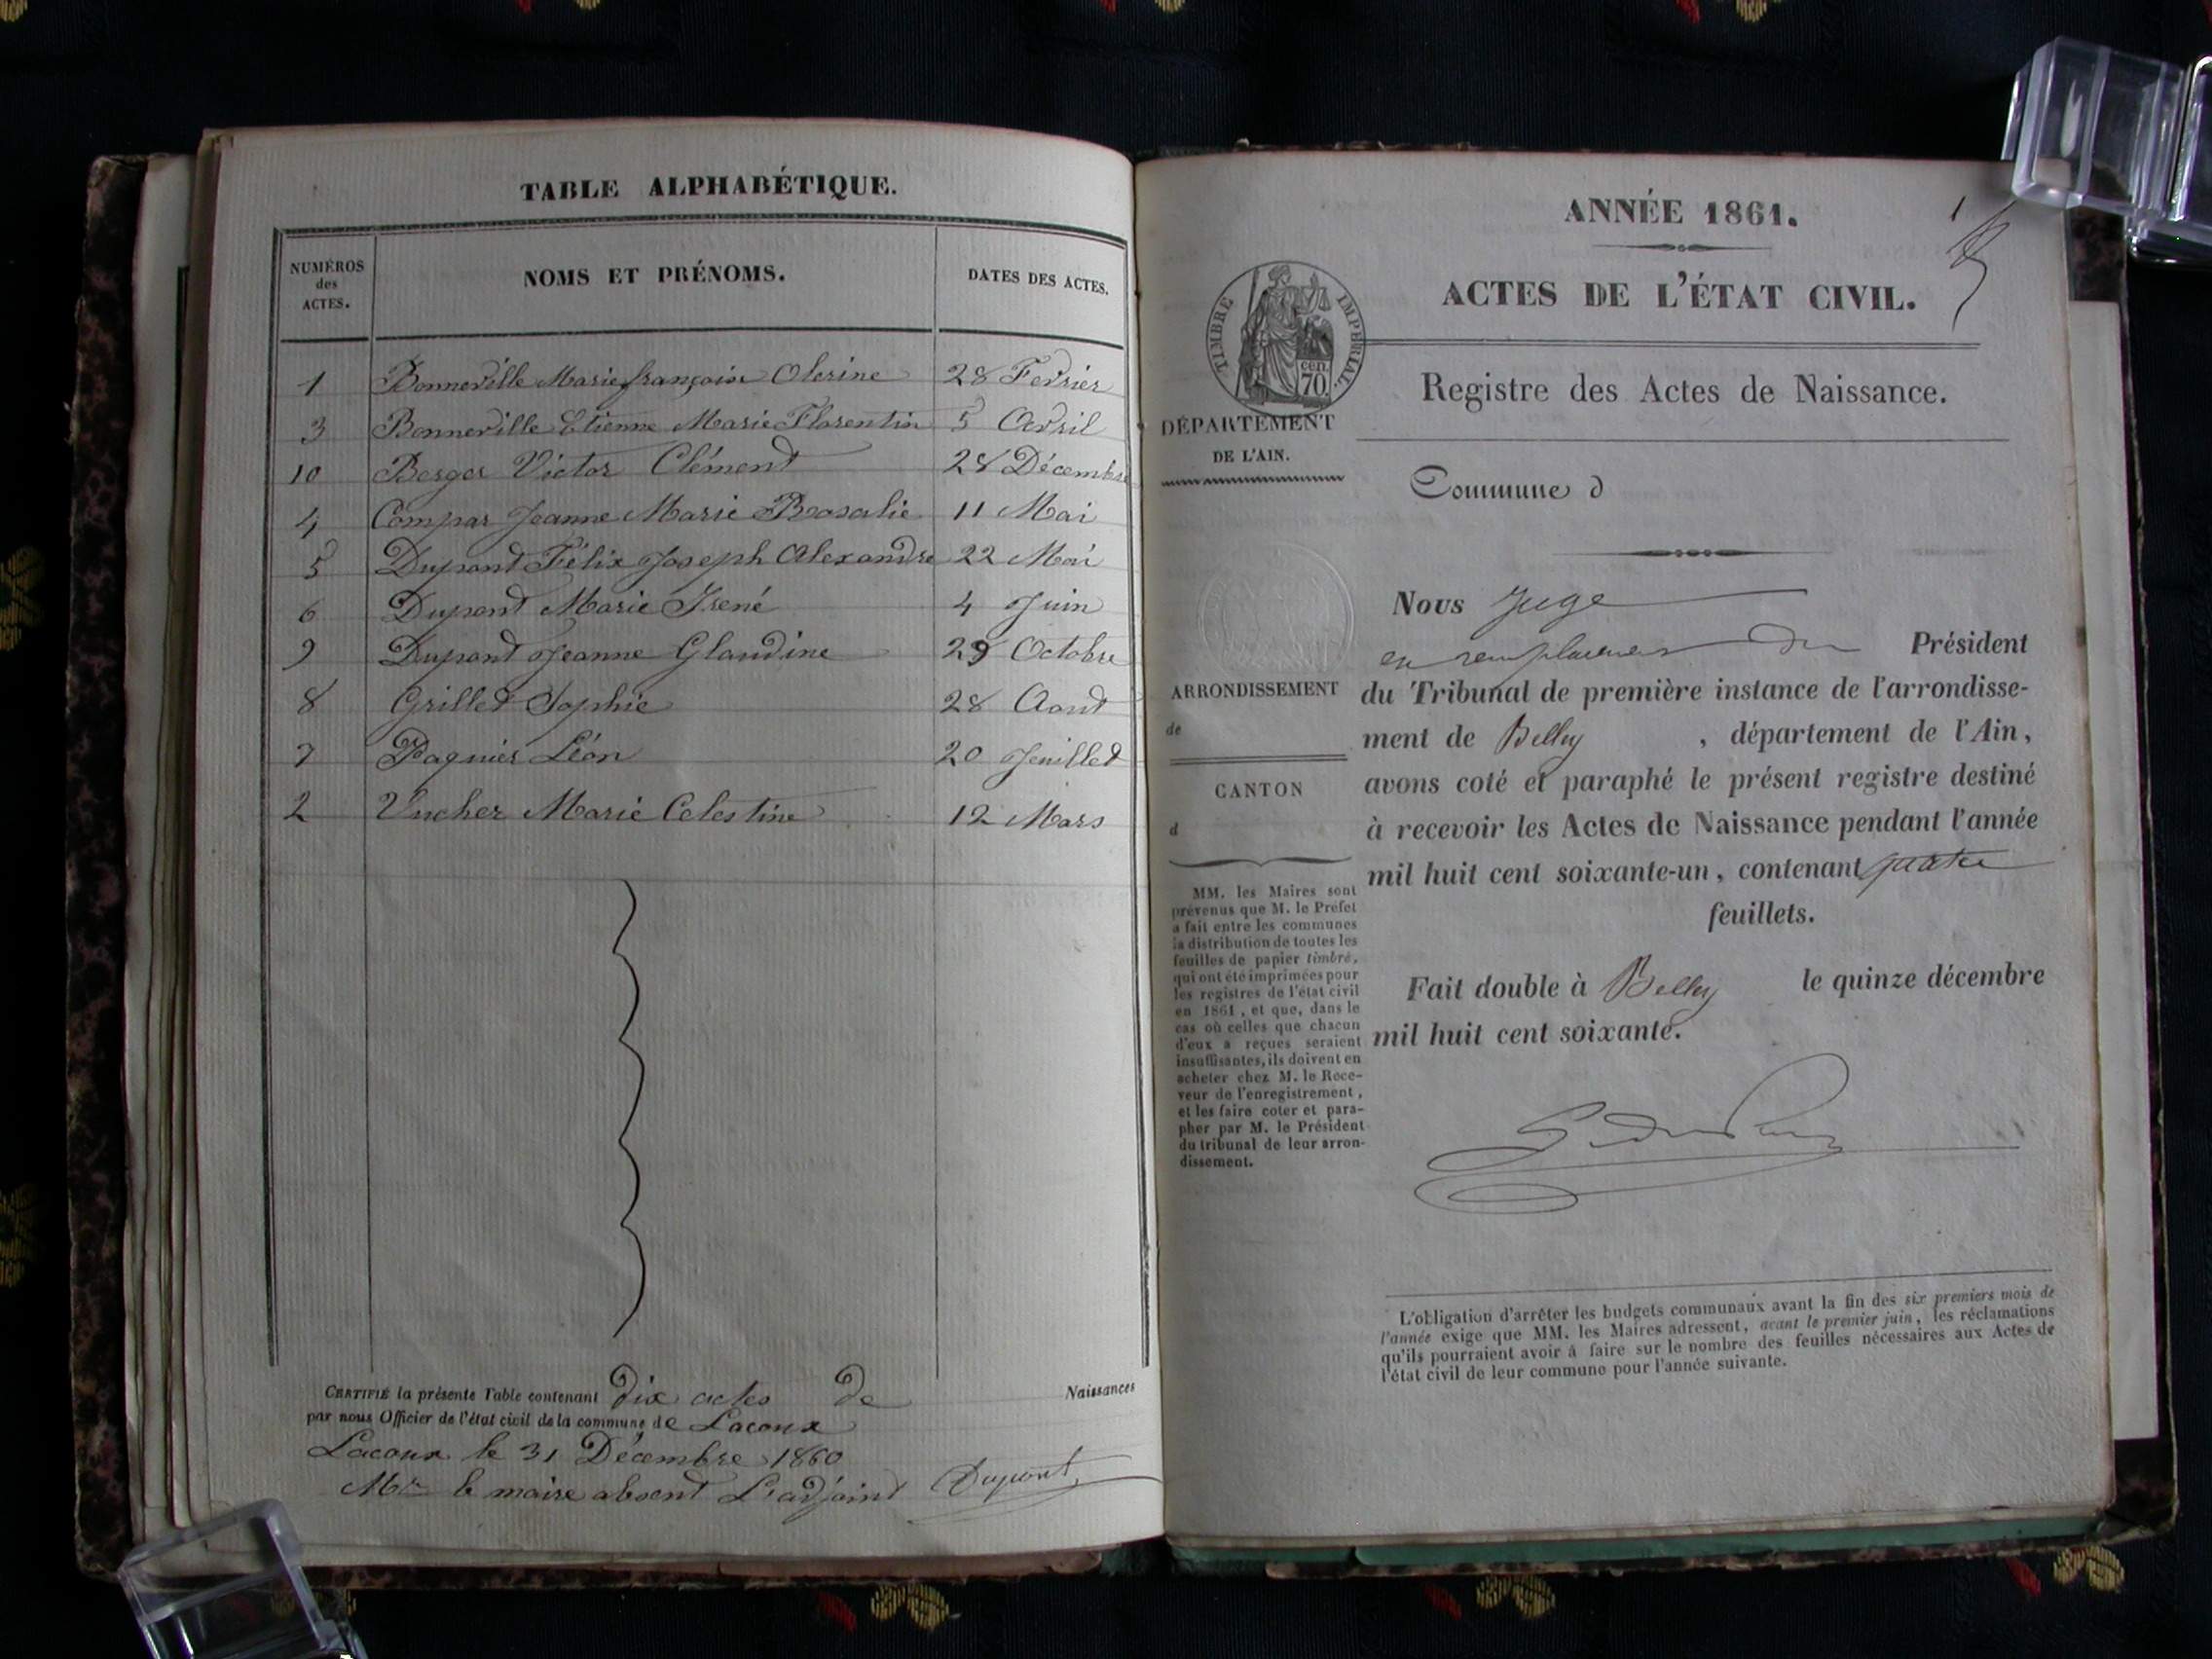 TABLE ALPHABÉTIQUE.
NUMÉROS des ACTES. NOMS ET PRÉNOMS. DATES DES ACTES.
1 Bonneville Marie françoise Olerine 28 Fevrier
3 Bonneville Etienne Marie Florentin 5 Avril
10 Berger Victor Clément 28 Décembre
4 Compar Jeanne Marie Rosalie 11 Mai
5 Dupont Félix Joseph Alexandre 22 Mai
6 Dupont Marie Irené 4 Juin
9 Dupont Jeanne Glaudine 29 Octobre
8 Grillet Sophie 28 Aout
7 Paquier Léon 20 Jeuillet
2 Vucher Marie Celestine 12 Mars
CERTIFIÉ la présente Table contenant dix actes de Naissances
par nous Officier de l'état civil de la commune de Lacoux
Lacoux le 31 Décembre 1860
Mr le maire absent L'adjoint Dupont
ANNÉE 1861.
1
ACTES DE L'ÉTAT CIVIL.
TIMBRE IMPERIAL.
cen.
70
Registre des Actes de Naissance.
DÉPARTEMENT
DE L'AIN.
Commune d
ARRONDISSEMENT
de
CANTON
d
MM. les Maires sont
prévenus que M. le Préfet
a fait entre les communes
la distribution de toutes les
feuilles de papier timbré,
qui ont été imprimées pour
les registres de l'état civil
en 1861, et que, dans le
cas où celles que chacun
d'eux a reçues seraient
insuffisantes, ils doivent en
acheter chez M. le Rece-
veur de l'enregistrement,
et les faire coter et para-
pher par M. le Président
du tribunal de leur arron-
dissement.
Nous Juge
en remplacement du Président
du Tribunal de première instance de l'arrondisse-
ment de Belley , département de l'Ain,
avons coté et paraphé le présent registre destiné
à recevoir les Actes de Naissance pendant l'année
mil huit cent soixante-un, contenant quatre
feuillets.
Fait double à Belley le quinze décembre
mil huit cent soixante.
L'obligation d'arrêter les budgets communaux avant la fin des six premiers mois de
l'année exige que MM. les Maires adressent, avant le premier juin, les réclamations
qu'ils pourraient avoir à faire sur le nombre des feuilles nécessaires aux Actes de
l'état civil de leur commune pour l'année suivante.